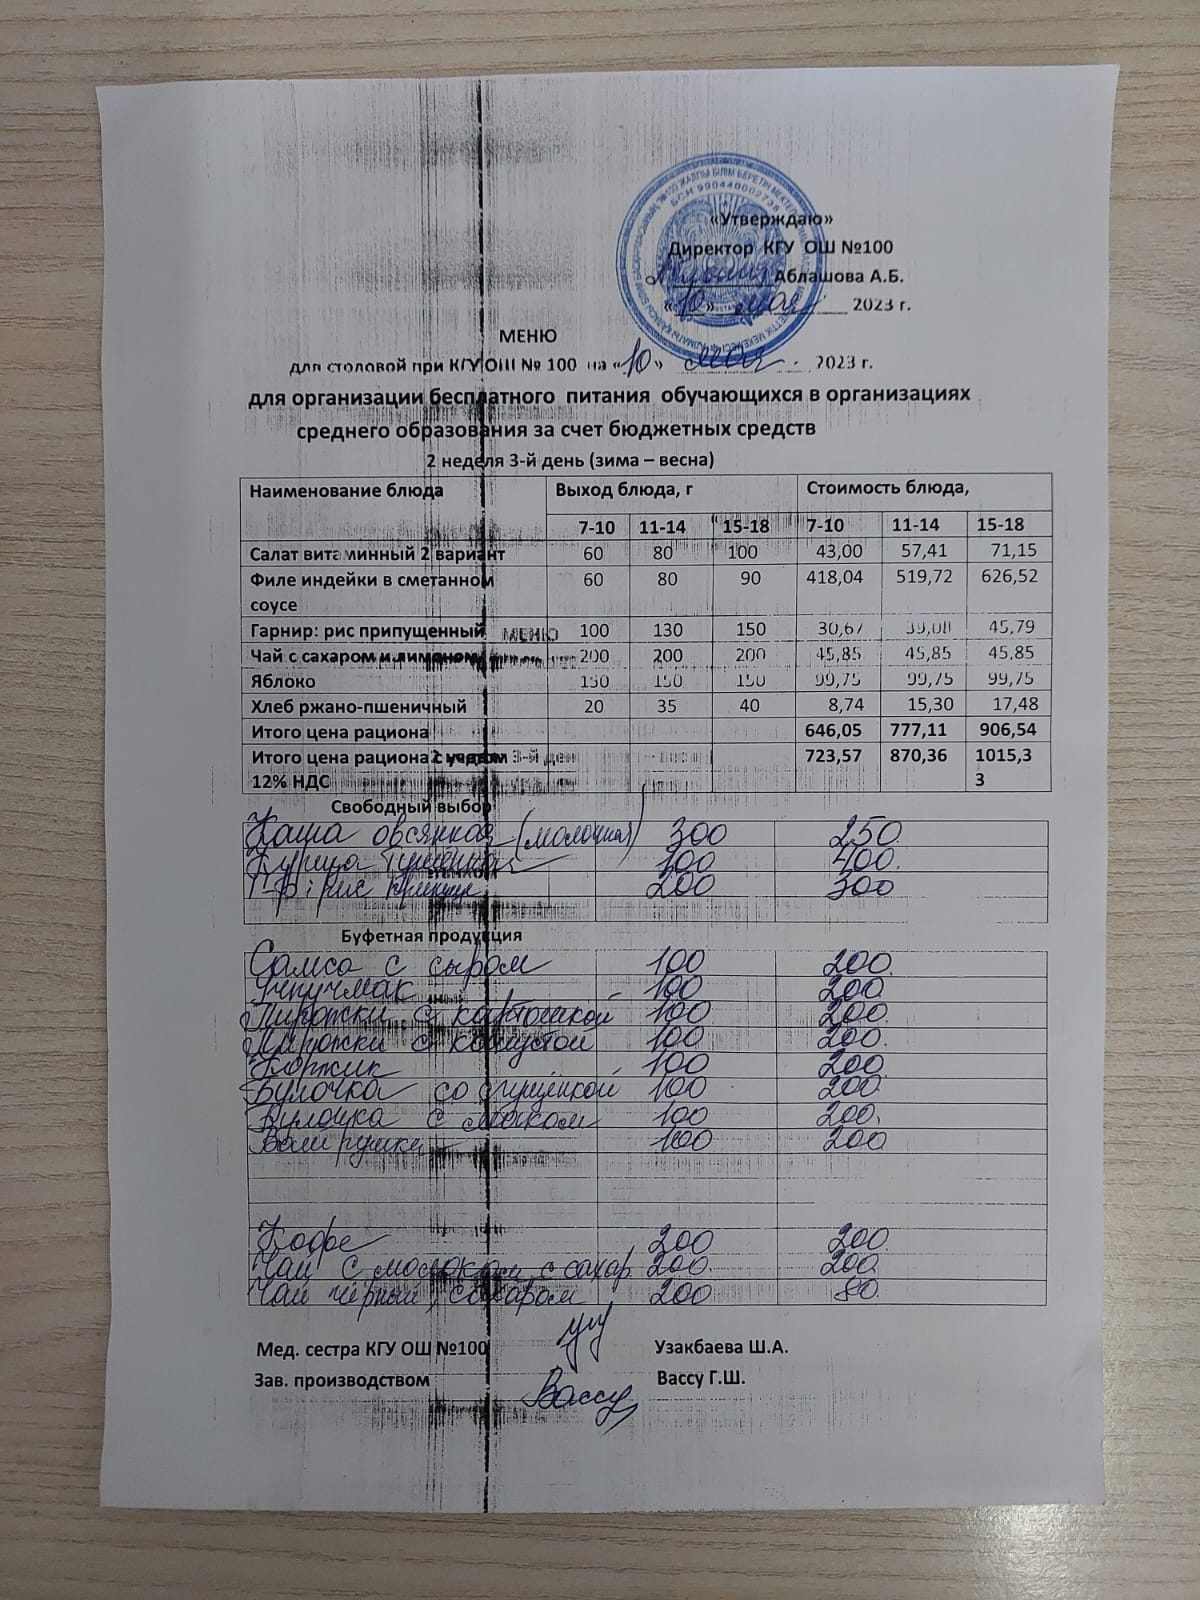 БСН 990440002738
«Утверждаю»
Директор КГУ ОШ №100
Аблашова А.Б.
«10» мая 2023 г.
МЕНЮ
для столовой при КГУ ОШ № 100 на «10» мая 2023 г.
для организации бесплатного питания обучающихся в организациях
среднего образования за счет бюджетных средств
2 неделя 3-й день (зима – весна)
Наименование блюда Выход блюда, г Стоимость блюда,
7-10 11-14 15-18 7-10 11-14 15-18
Салат витаминный 2 вариант 60 80 100 43,00 57,41 71,15
Филе индейки в сметанном 60 80 90 418,04 519,72 626,52
соусе
Гарнир: рис припущенный МЕНЮ 100 130 150 30,67 39,08 45,79
Чай с сахаром и лимоном 200 200 200 45,85 45,85 45,85
Яблоко 150 150 150 99,75 99,75 99,75
Хлеб ржано-пшеничный 20 35 40 8,74 15,30 17,48
Итого цена рациона 646,05 777,11 906,54
Итого цена рациона с учетом 3-й ден 723,57 870,36 1015,3
12% НДС 3
Свободный выбор
Каша овсянная (молочная) 300 250
Курица тушенная 100 400
Г-р: рис 200 300
Буфетная продукция
Самса с сыром 100 200
Учпучмак 100 200
Пирожки с картошкой 100 200
Пирожки с капустой 100 200
Коржик 100 200
Булочка со сгущенкой 100 200
Булочка с маком 100 200
100 200
Кофе 200 200
Чай с молоком с сахар 200 200
Чай черный с сахаром 200 80
Мед. сестра КГУ ОШ №100 Узакбаева Ш.А.
Зав. производством Вассу Вассу Г.Ш.